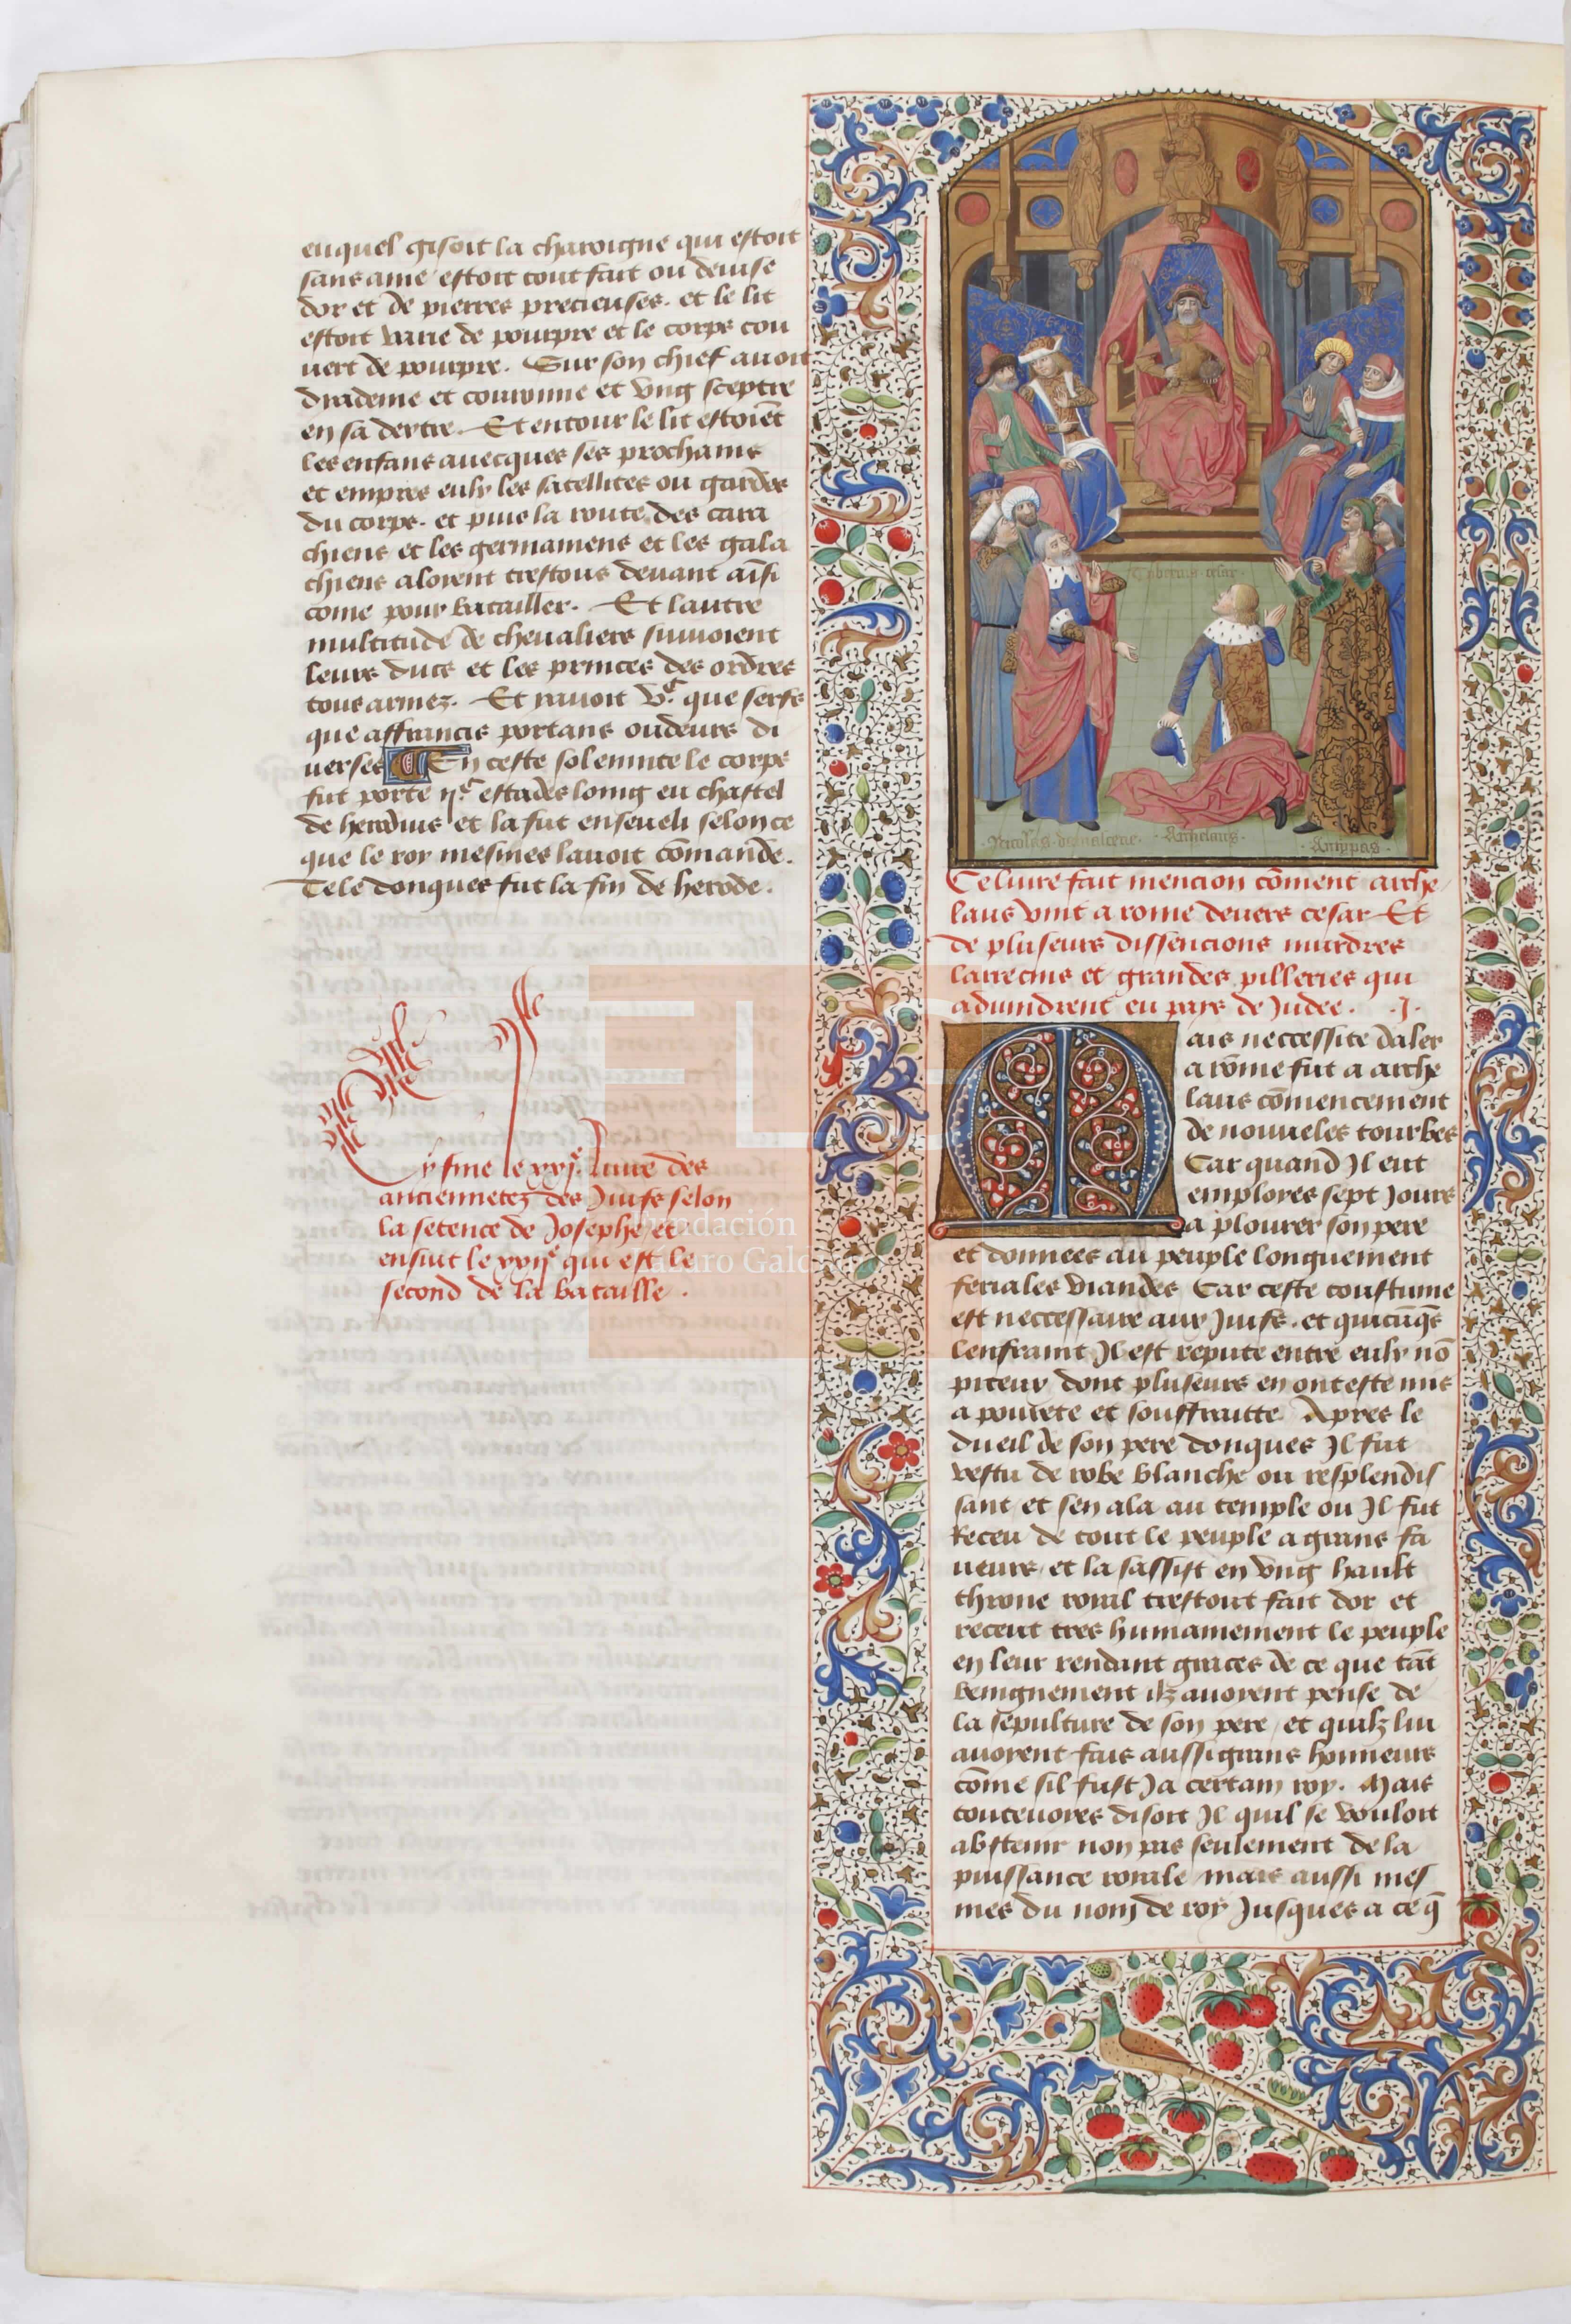 enquel gisoit la charoigne qui estoit
sans ame estoit tout fait ou deuise
dor et de pierres precieuses. et le lit
estoit varie de pourpre et le corps cou
uert de pourpre. Sur son chief auoit
diademe et couronne et vng sceptre
en sa dextre. Et entour le lit estoiēt
les enfans auecques ses prochains
et empres eulx les satellites ou gardes
du corps. et puis la route des tara
chiens et les germaniens et les gala
chiens aloient trestous deuant aīsi
come pour batailler. Et lautre
multitude de cheualiers suiuoient
leurs ducs et les princes des ordres
tous armez. Et y auoit v.c que serfs
que affrancis portans oudeurs di
uerses En ceste solennite le corps
fut porte ij.c estades loing eu chastel
de herodius et la fut enseueli selon ce
que le roy mesmes lauoit cōmande.
Tele donques fut la fin de herode.
Cy fine le xxj.e liure des
anciennetez des Juifs selon
la setence de Josephe et
ensuit le xxij.e qui est le
second de la bataille.
Tiberius cesar.
Nicolas de malcene. Archelaus. Antippas.
Ce liure fait mencion cōment arche
laus vint a rome deuers cesar Et
de pluseurs dissencions murdres
larrecins et grandes pilleries qui
aduindrent eu pays de Judee. .J.
Mais neccessite daler
a rōme fut a arche
laus cōmencement
de nouueles tourbes
Car quand Jl eut
emploies sept Jours
a plourer son pere
et donnees au peuple longuement
feriales viandes Car ceste coustume
est neccessaire aux Juifs. et quicūqs
lenfraint Jl est repute entre eulx nō
piteux dont pluseurs en ont este mis
a pourete et souffraitte. Apres le
dueil de son pere donques Jl fut
vestu de robe blanche ou resplendis
sant et sen ala au temple ou Jl fut
Receu de tout le peuple a grans fa
ueurs et la sassist en vng hault
throne roial trestout fait dor et
receut tres humainement le peuple
en leur rendant graces de ce que tāt
benignement ilz auoyent pense de
la sepulture de son pere et quilz lui
auoyent fais aussi grans honneurs
cōme sil fust Ja certain roy. Mais
toutenoies disoit Jl quil se vouloit
abstenir non pas seulement de la
puissance roiale mais aussi mes
mes du nom de roy Jusques a ce q̄
FLG
Fundación
Lázaro Galdiano